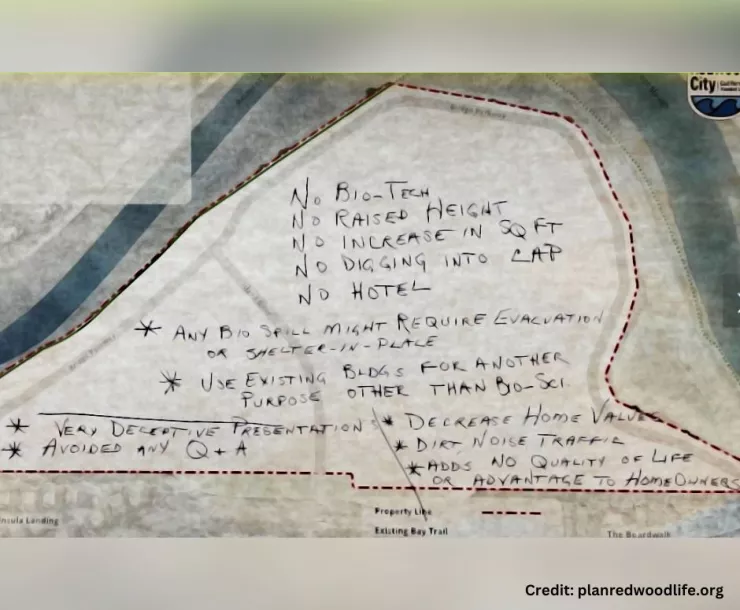 City
Bridge Parkway
NO BIO-TECH
NO RAISED HEIGHT
NO INCREASE IN SQ FT
NO DIGGING INTO CAP
NO HOTEL
* ANY BIO SPILL MIGHT REQUIRE EVACUATION
OR SHELTER-IN-PLACE
* USE EXISTING BLDGS FOR ANOTHER
PURPOSE OTHER THAN BIO-SCI.
* VERY DECEPTIVE PRESENTATION
* AVOIDED ANY Q + A
* DECREASE HOME VALUES
* DIRT, NOISE TRAFFIC
* ADDS NO QUALITY OF LIFE
OR ADVANTAGE TO HOMEOWNERS
nsula Landing
Property Line
Existing Bay Trail
The Boardwalk
Credit: planredwoodlife.org